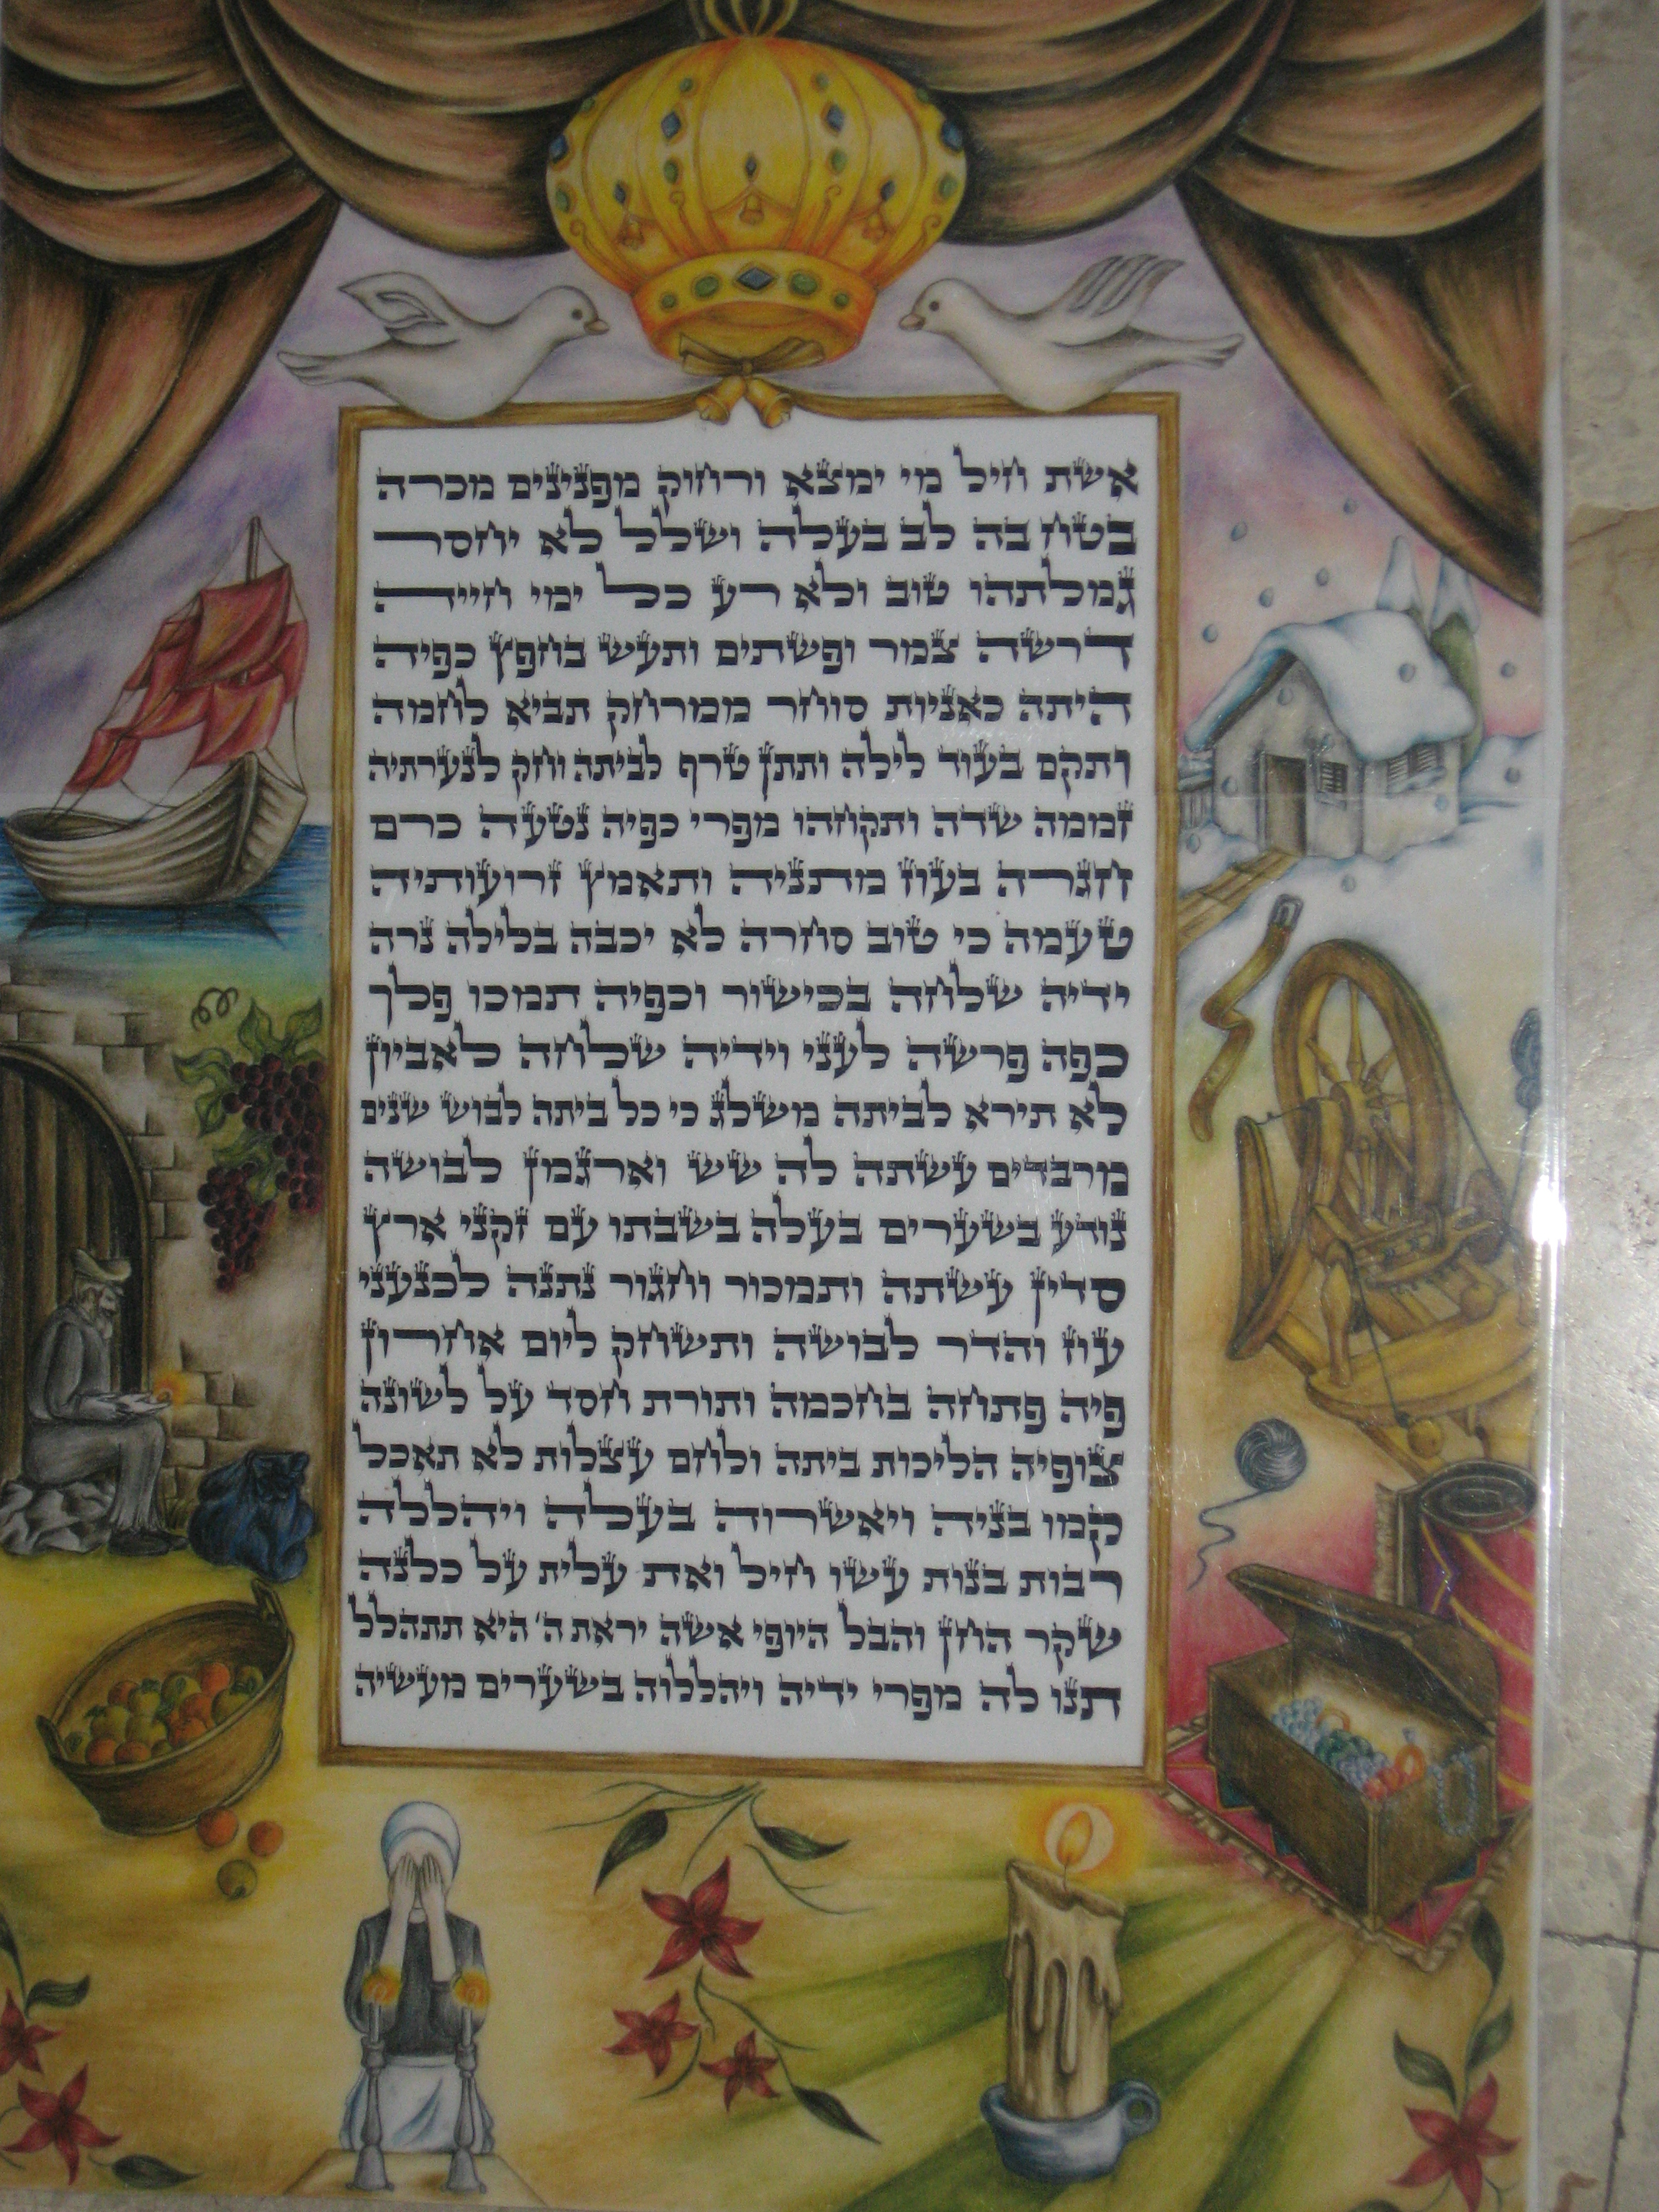 אשת חיל מי ימצא ורחוק מפנינים מכרה
בטח בה לב בעלה ושלל לא יחסר
גמלתהו טוב ולא רע כל ימי חייה
דרשה צמר ופשתים ותעש בחפץ כפיה
היתה כאניות סוחר ממרחק תביא לחמה
ותקם בעוד לילה ותתן טרף לביתה וחק לנערתיה
זממה שדה ותקחהו מפרי כפיה נטעה כרם
חגרה בעוז מתניה ותאמץ זרועותיה
טעמה כי טוב סחרה לא יכבה בלילה נרה
ידיה שלחה בכישור וכפיה תמכו פלך
כפה פרשה לעני וידיה שלחה לאביון
לא תירא לביתה משלג כי כל ביתה לבוש שנים
מרבדים עשתה לה שש וארגמן לבושה
נודע בשערים בעלה בשבתו עם זקני ארץ
סדין עשתה ותמכור וחגור נתנה לכנעני
עוז והדר לבושה ותשחק ליום אחרון
פיה פתחה בחכמה ותורת חסד על לשונה
צופיה הליכות ביתה ולחם עצלות לא תאכל
קמו בניה ויאשרוה בעלה ויהללה
רבות בנות עשו חיל ואת עלית על כלנה
שקר החן והבל היופי אשה יראת ה' היא תתהלל
תנו לה מפרי ידיה ויהללוה בשערים מעשיה